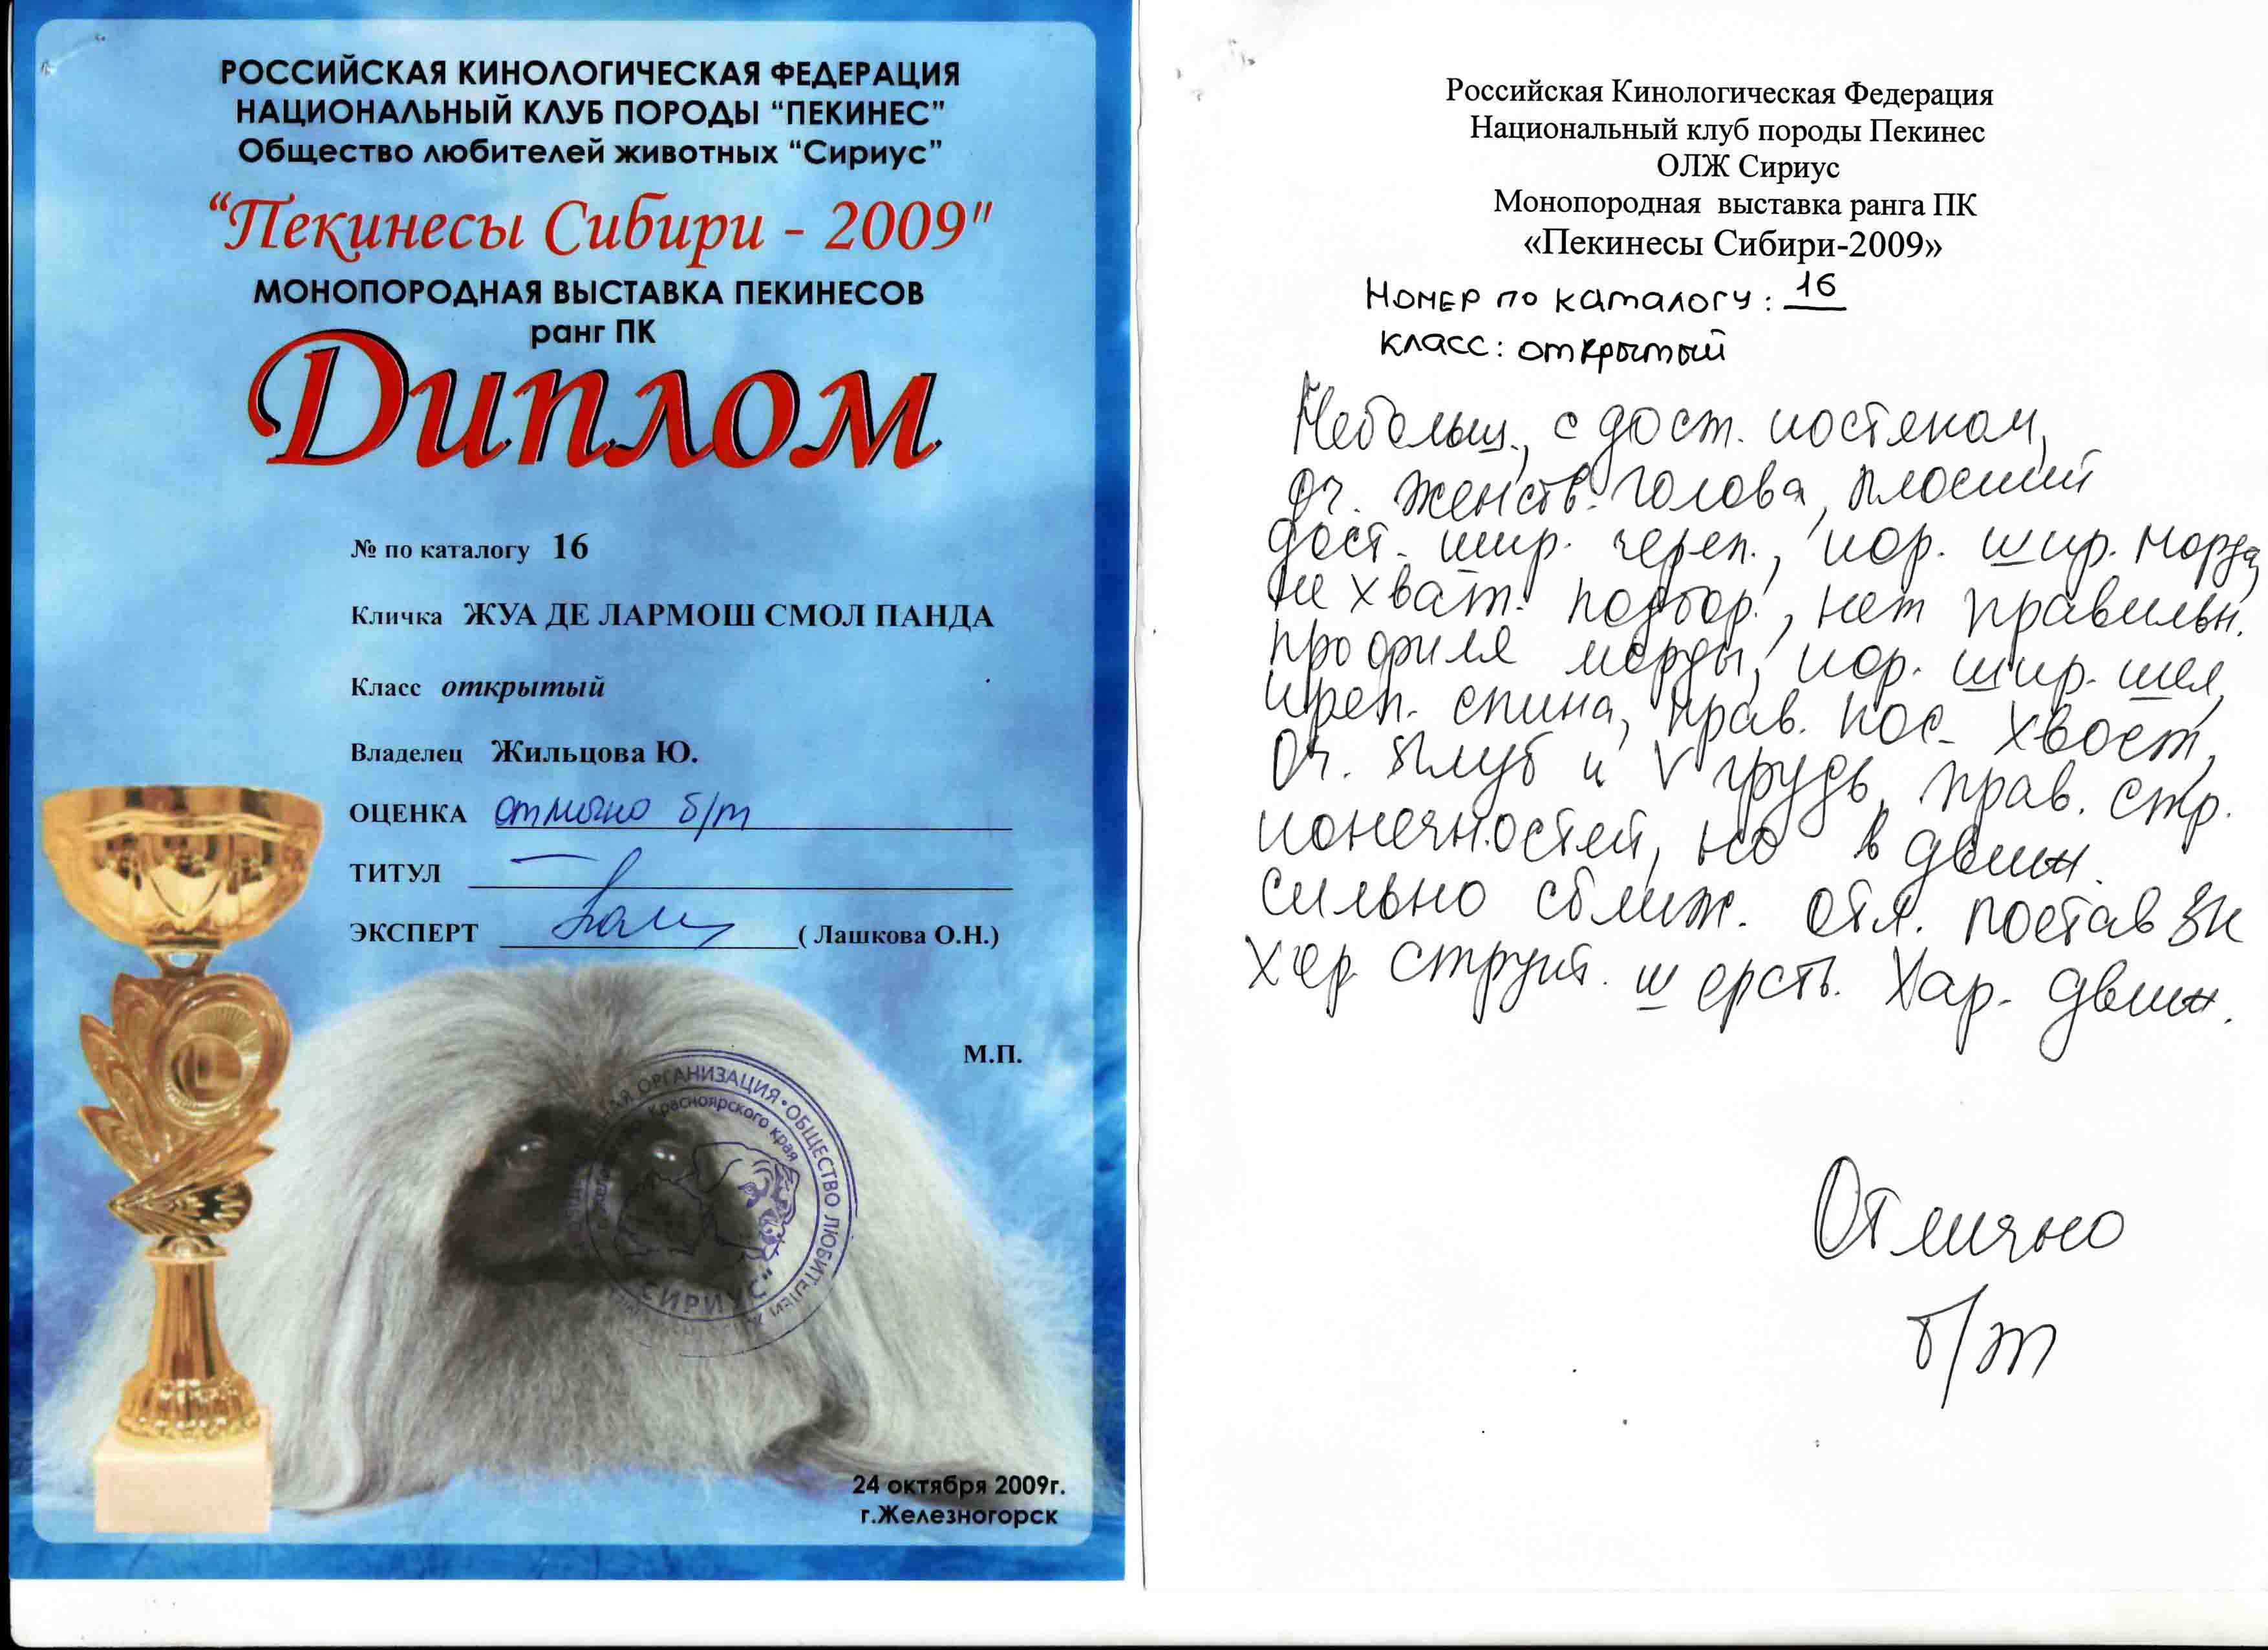 РОССИЙСКАЯ КИНОЛОГИЧЕСКАЯ ФЕДЕРАЦИЯ
НАЦИОНАЛЬНЫЙ КЛУБ ПОРОДЫ “ПЕКИНЕС”
Общество любителей животных “Сириус”
“Пекинесы Сибири - 2009"
МОНОПОРОДНАЯ ВЫСТАВКА ПЕКИНЕСОВ
ранг ПК
Диплом
№ по каталогу 16
Кличка ЖУА ДЕ ЛАРМОШ СМОЛ ПАНДА
Класс открытый
Владелец Жильцова Ю.
ОЦЕНКА отлично б/т
ТИТУЛ —
ЭКСПЕРТ ( Лашкова О.Н.)
М.П.
НАЯ ОРГАНИЗАЦИЯ • ОБЩЕСТВО ЛЮБИТЕЛЕЙ
Красноярского края
СИРИУС"
24 октября 2009г.
г.Железногорск
Российская Кинологическая Федерация
Национальный клуб породы Пекинес
ОЛЖ Сириус
Монопородная выставка ранга ПК
«Пекинесы Сибири-2009»
Номер по каталогу: 16
класс: открытый
Небольш., с дост. костяком,
оч. женств. голова, плоский
дост. шир. череп., кор. шир. морда,
не хват. подбор., нет правильн.
профиля морды, кор. шир. шея,
креп. спина, прав. пос. хвост,
Оч. глуб и V грудь, прав. стр.
конечностей, но в движ.
сильно сближ. отл. постав ЗК
Хор струящ. шерсть. Хар. движ.
Отлично
б/т